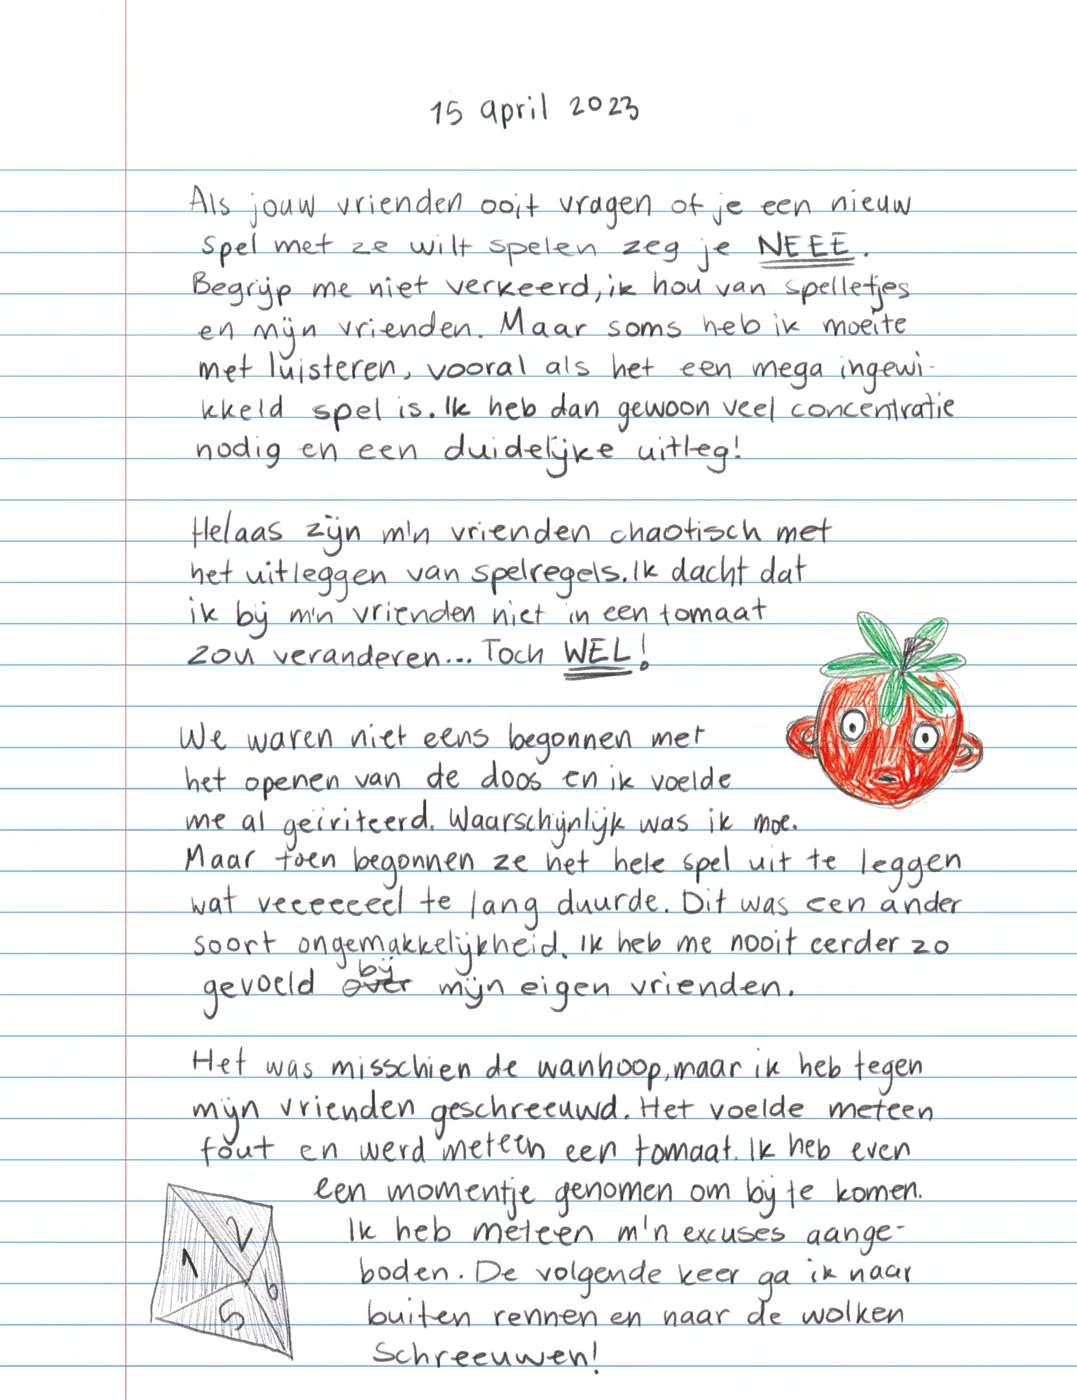 15 april 2023
Als jouw vrienden ooit vragen of je een nieuw
spel met ze wilt spelen zeg je NEEE.
Begrijp me niet verkeerd, ik hou van spelletjes
en mijn vrienden. Maar soms heb ik moeite
met luisteren, vooral als het een mega ingewi-
kkeld spel is. Ik heb dan gewoon veel concentratie
nodig en een duidelijke uitleg!
Helaas zijn m'n vrienden chaotisch met
het uitleggen van spelregels. Ik dacht dat
ik bij m'n vrienden niet in een tomaat
zou veranderen... Toch WEL!
We waren niet eens begonnen met
het openen van de doos en ik voelde
me al geïriteerd. Waarschijnlijk was ik moe.
Maar toen begonnen ze het hele spel uit te leggen
wat veeeeeel te lang duurde. Dit was een ander
soort ongemakkelijkheid. Ik heb me nooit eerder zo
gevoeld over bij mijn eigen vrienden.
Het was misschien de wanhoop, maar ik heb tegen
mijn vrienden geschreeuwd. Het voelde meteen
fout en werd meteen een tomaat. Ik heb even
een momentje genomen om bij te komen.
Ik heb meteen m'n excuses aange-
boden. De volgende keer ga ik naar
buiten rennen en naar de wolken
schreeuwen!
1 2
5 6